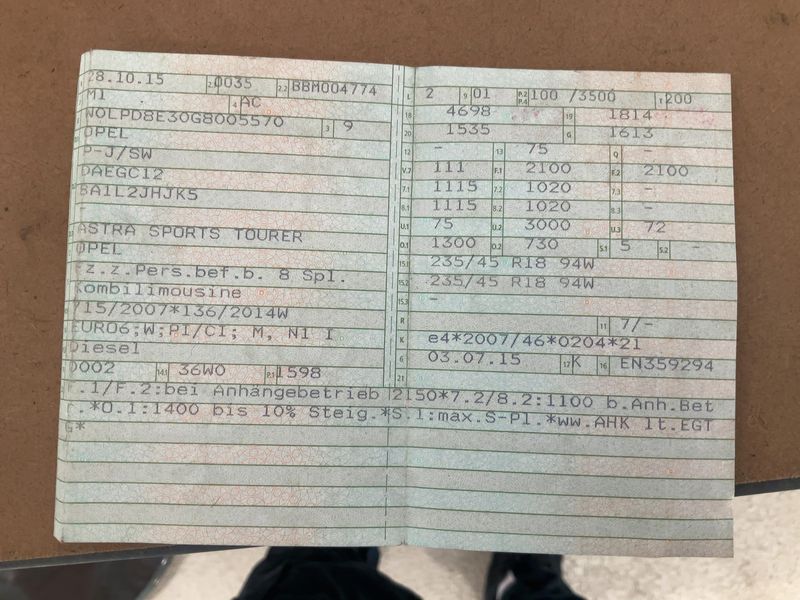 28.10.15 2.1 0035 2.2 BBM004774
M1 4 AC
W0LPD8E30G8005570 3 9
OPEL
P-J/SW
DAEGC12
BA1L2JHJK5
ASTRA SPORTS TOURER
OPEL
Fz.z.Pers.bef.b. 8 Spl.
Kombilimousine
715/2007*136/2014W
EURO6;W;PI/CI; M, N1 I
Diesel
14.1 36W0 P.1 1598
L 2 9 01 P.2 P.4 100 /3500 T 200
18 4698 19 1814
20 1535 G 1613
12 - 13 75 Q -
V.7 111 F.1 2100 F.2 2100
7.1 1115 7.2 1020 7.3 -
8.1 1115 8.2 1020 8.3 -
U.1 75 U.2 3000 U.3 72
O.1 1300 O.2 730 S.1 5 S.2 -
15.1 235/45 R18 94W
15.2 235/45 R18 94W
15.3 -
R 11 7/-
K e4*2007/46*0204*21
6 03.07.15 17 K 16 EN359294
21
F.1/F.2:bei Anhängebetrieb 2150*7.2/8.2:1100 b.Anh.Bet
r.*O.1:1400 bis 10% Steig.*S.1:max.S-Pl.*ww.AHK lt.EGT
G*